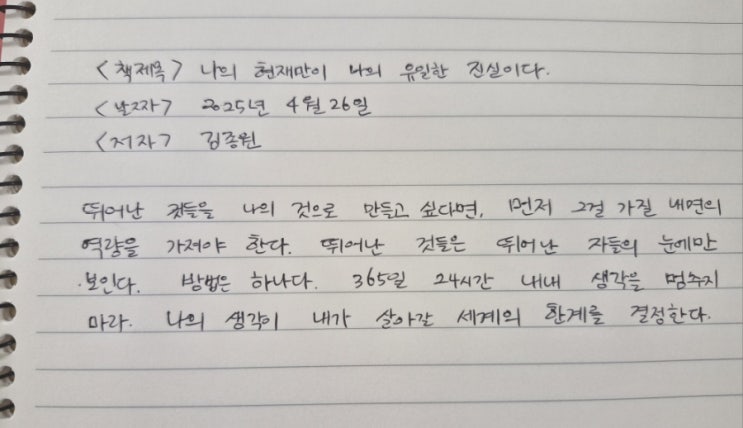 <책제목> 나의 현재만이 나의 유일한 진실이다.
<날짜> 2025년 4월 26일
<저자> 김종원
뛰어난 것들을 나의 것으로 만들고 싶다면, 먼저 그걸 가질 내면의
역량을 가져야 한다. 뛰어난 것들은 뛰어난 자들의 눈에만
보인다. 방법은 하나다. 365일 24시간 내내 생각을 멈추지
마라. 나의 생각이 내가 살아갈 세계의 한계를 결정한다.